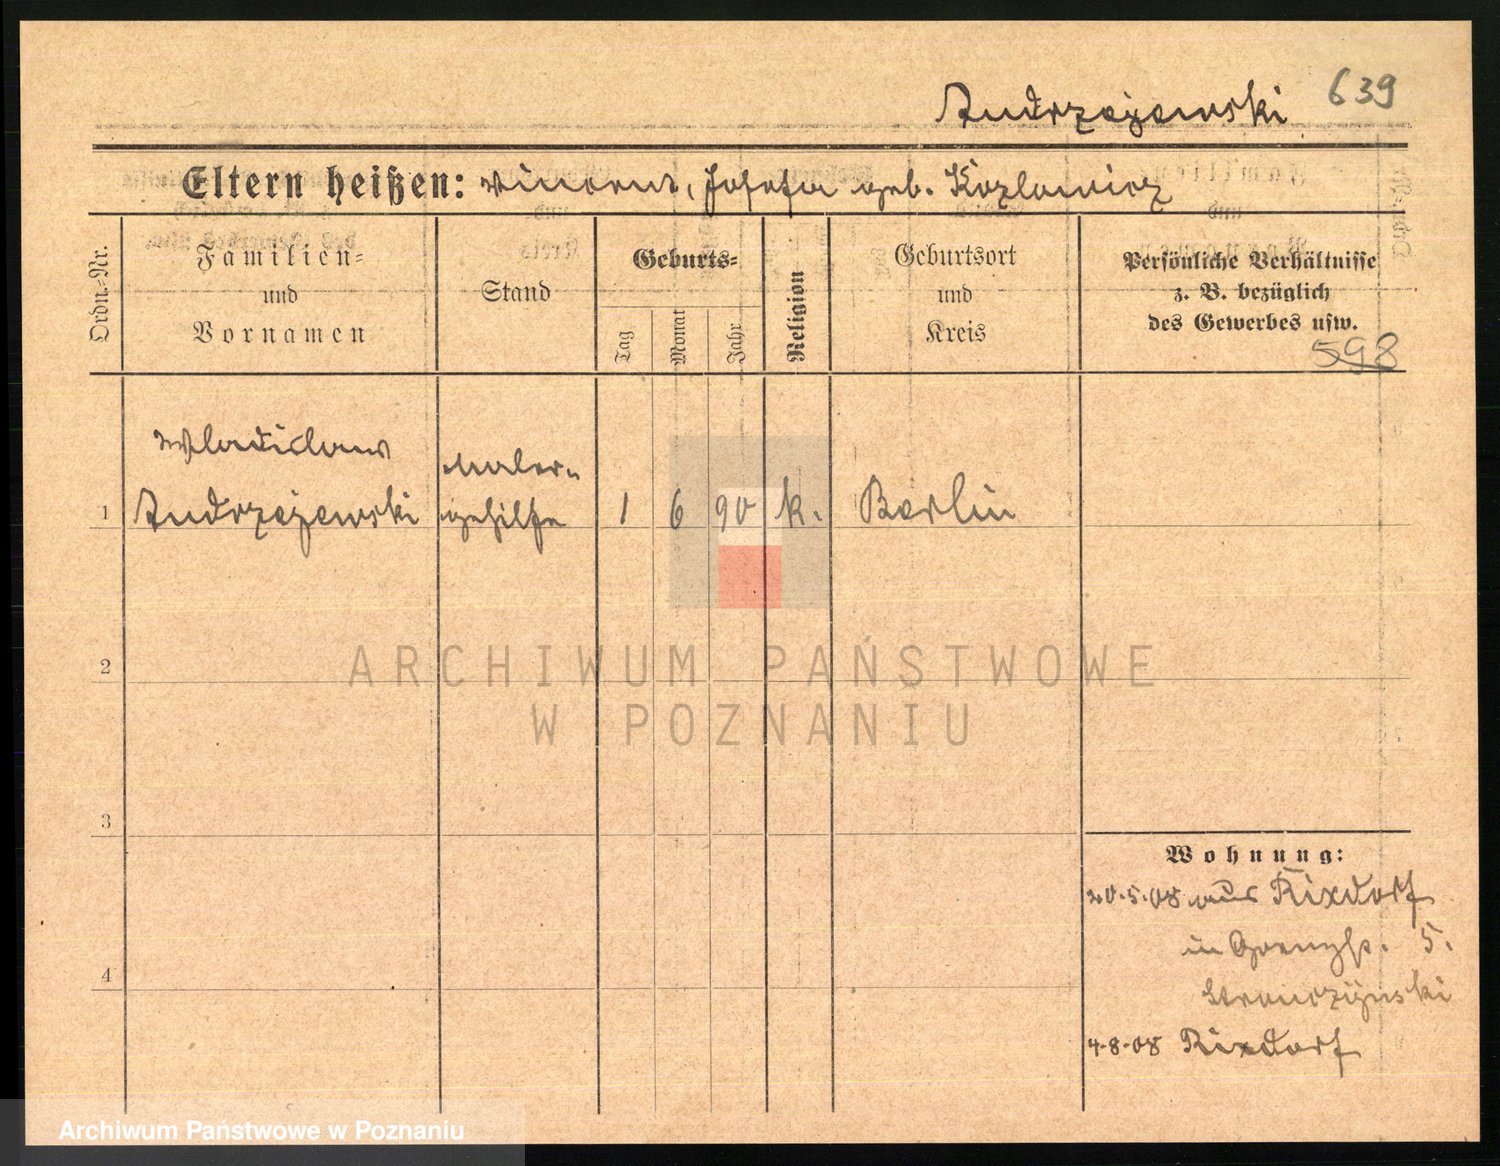 Andrzejewski 639
Eltern heißen: Vincent, Josefa geb. Kozlowicz
Ordn.-Nr.
Familien-
und
Vornamen
Stand
Geburts-
Tag
Monat
Jahr
Religion
Geburtsort
und
Kreis
Persönliche Verhältnisse
z. B. bezüglich
des Gewerbes usw.
598
Wladislaus
Maler-
1 Andrzejewski gehilfe 1 6 90 k. Berlin
2
3
4
Wohnung:
20.5.08 aus Rixdorf
in Grenzstr. 5.
4.8.08 Rixdorf
ARCHIWUM PAŃSTWOWE
W POZNANIU
Archiwum Państwowe w Poznaniu